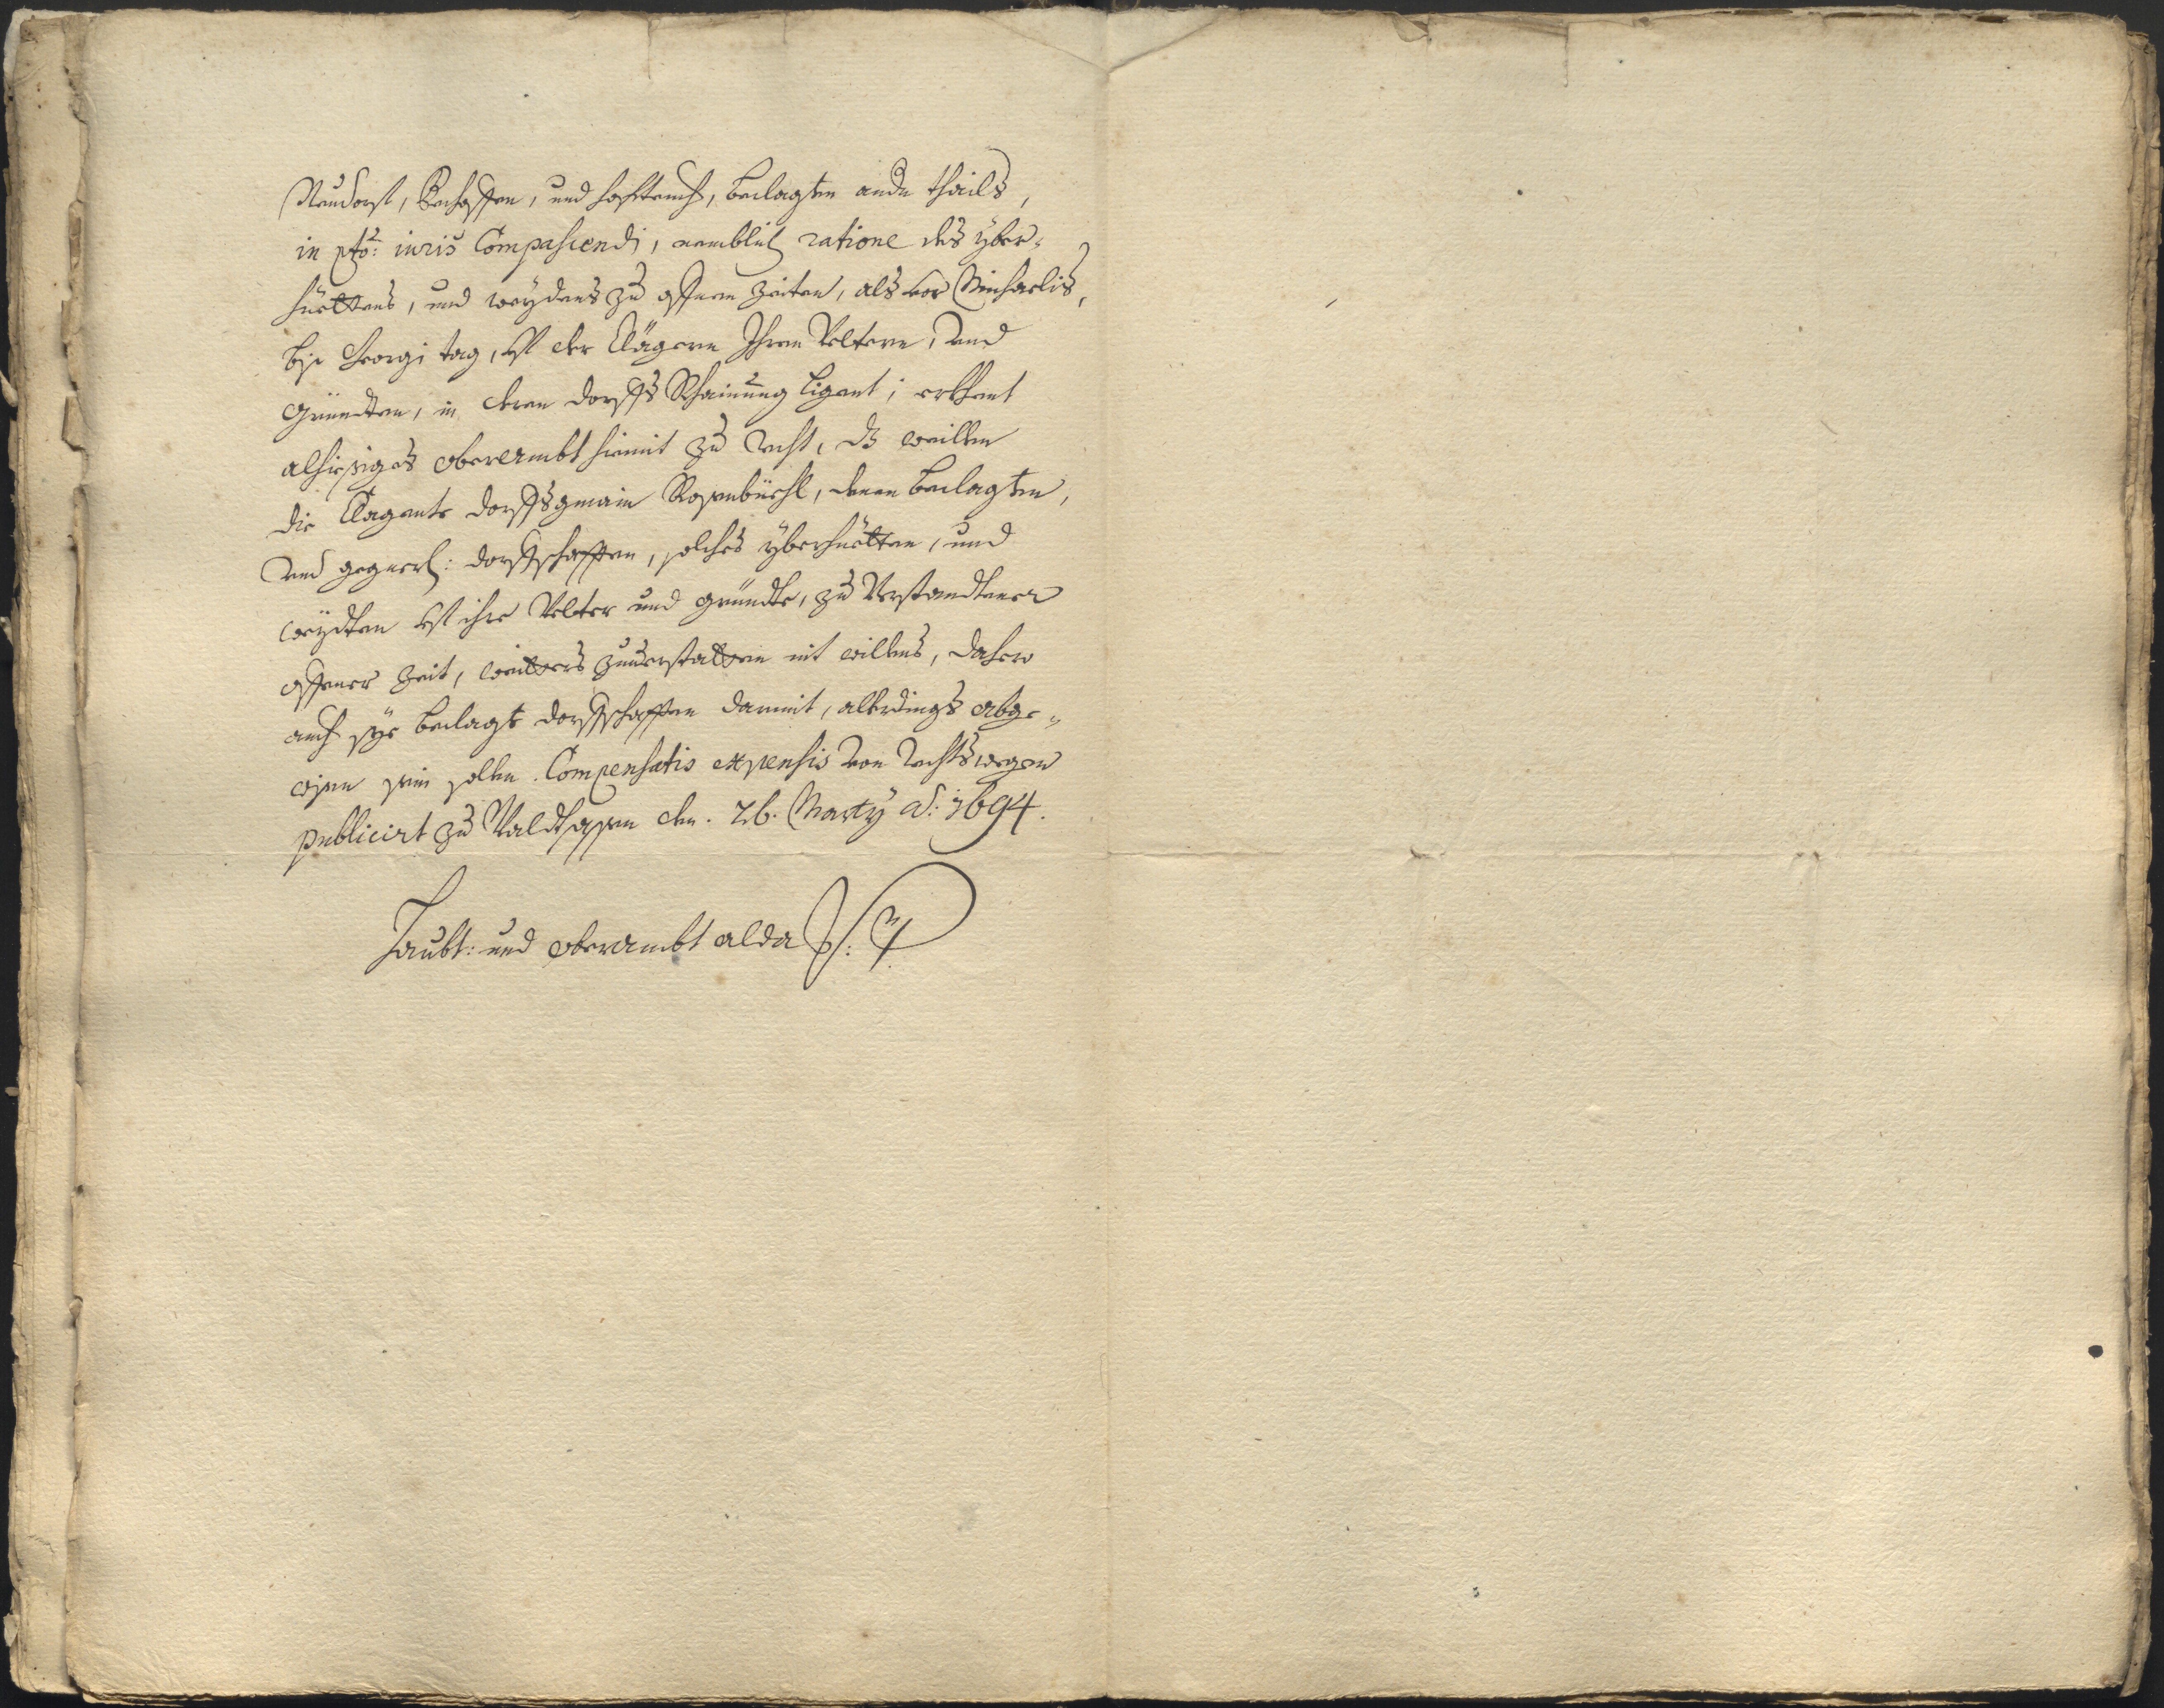 Neudorf, Konhoffen, und hofteich, beclagten andn thails,
in pto: iuris Compascendi, namblich ratione des yber-
hüettens, und weydens zu offnen Zeiten, als vor Michaelis,
bis Georgi tag, vf der Clägern Ihren Veltern, vnd
Gründten, in deren dorffs Rhainung ligent; erkhent
alhiesiges oberambt hiemit zu recht, dz weillen
die Clagente dorffsgmain Rosenbüehl, denen beclagten,
vnd gegnerl: dorffschafften, solches yberhüetten, und
weydten vf ihre Velter und gründte, zu Verstandtener
offener Zeit, weitters zuuerstatten nit willens, dahero
auch sye beclagte dorffschafften darmit, allerdings abge-
wisen sein sollen. Compensatis expensis von rechtswegen
publicirt zu Waldtsassen den. 26. Marty ao: 1694.
Haubt: und oberambt alda